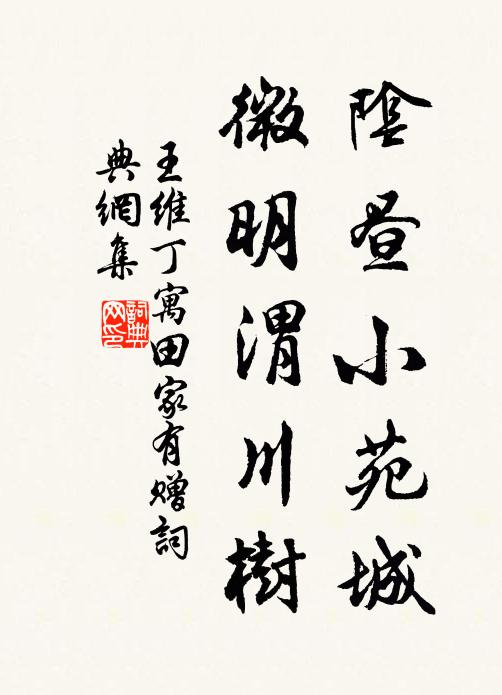 陰晝小苑城
微明渭川樹
王維丁寓田家有贈詞
典網集
詞典
网印